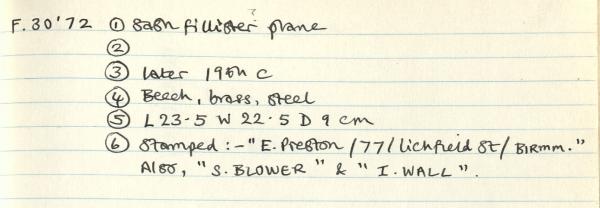 F.30'72 ① Sash fillister plane ?
②
③ Later 19th C
④ Beech, brass, steel
⑤ L 23.5 W 22.5 D 9 cm
⑥ Stamped :- "E. Preston /77/ lichfield St/ BIRMM."
Also, "S. BLOWER" & "I. WALL".